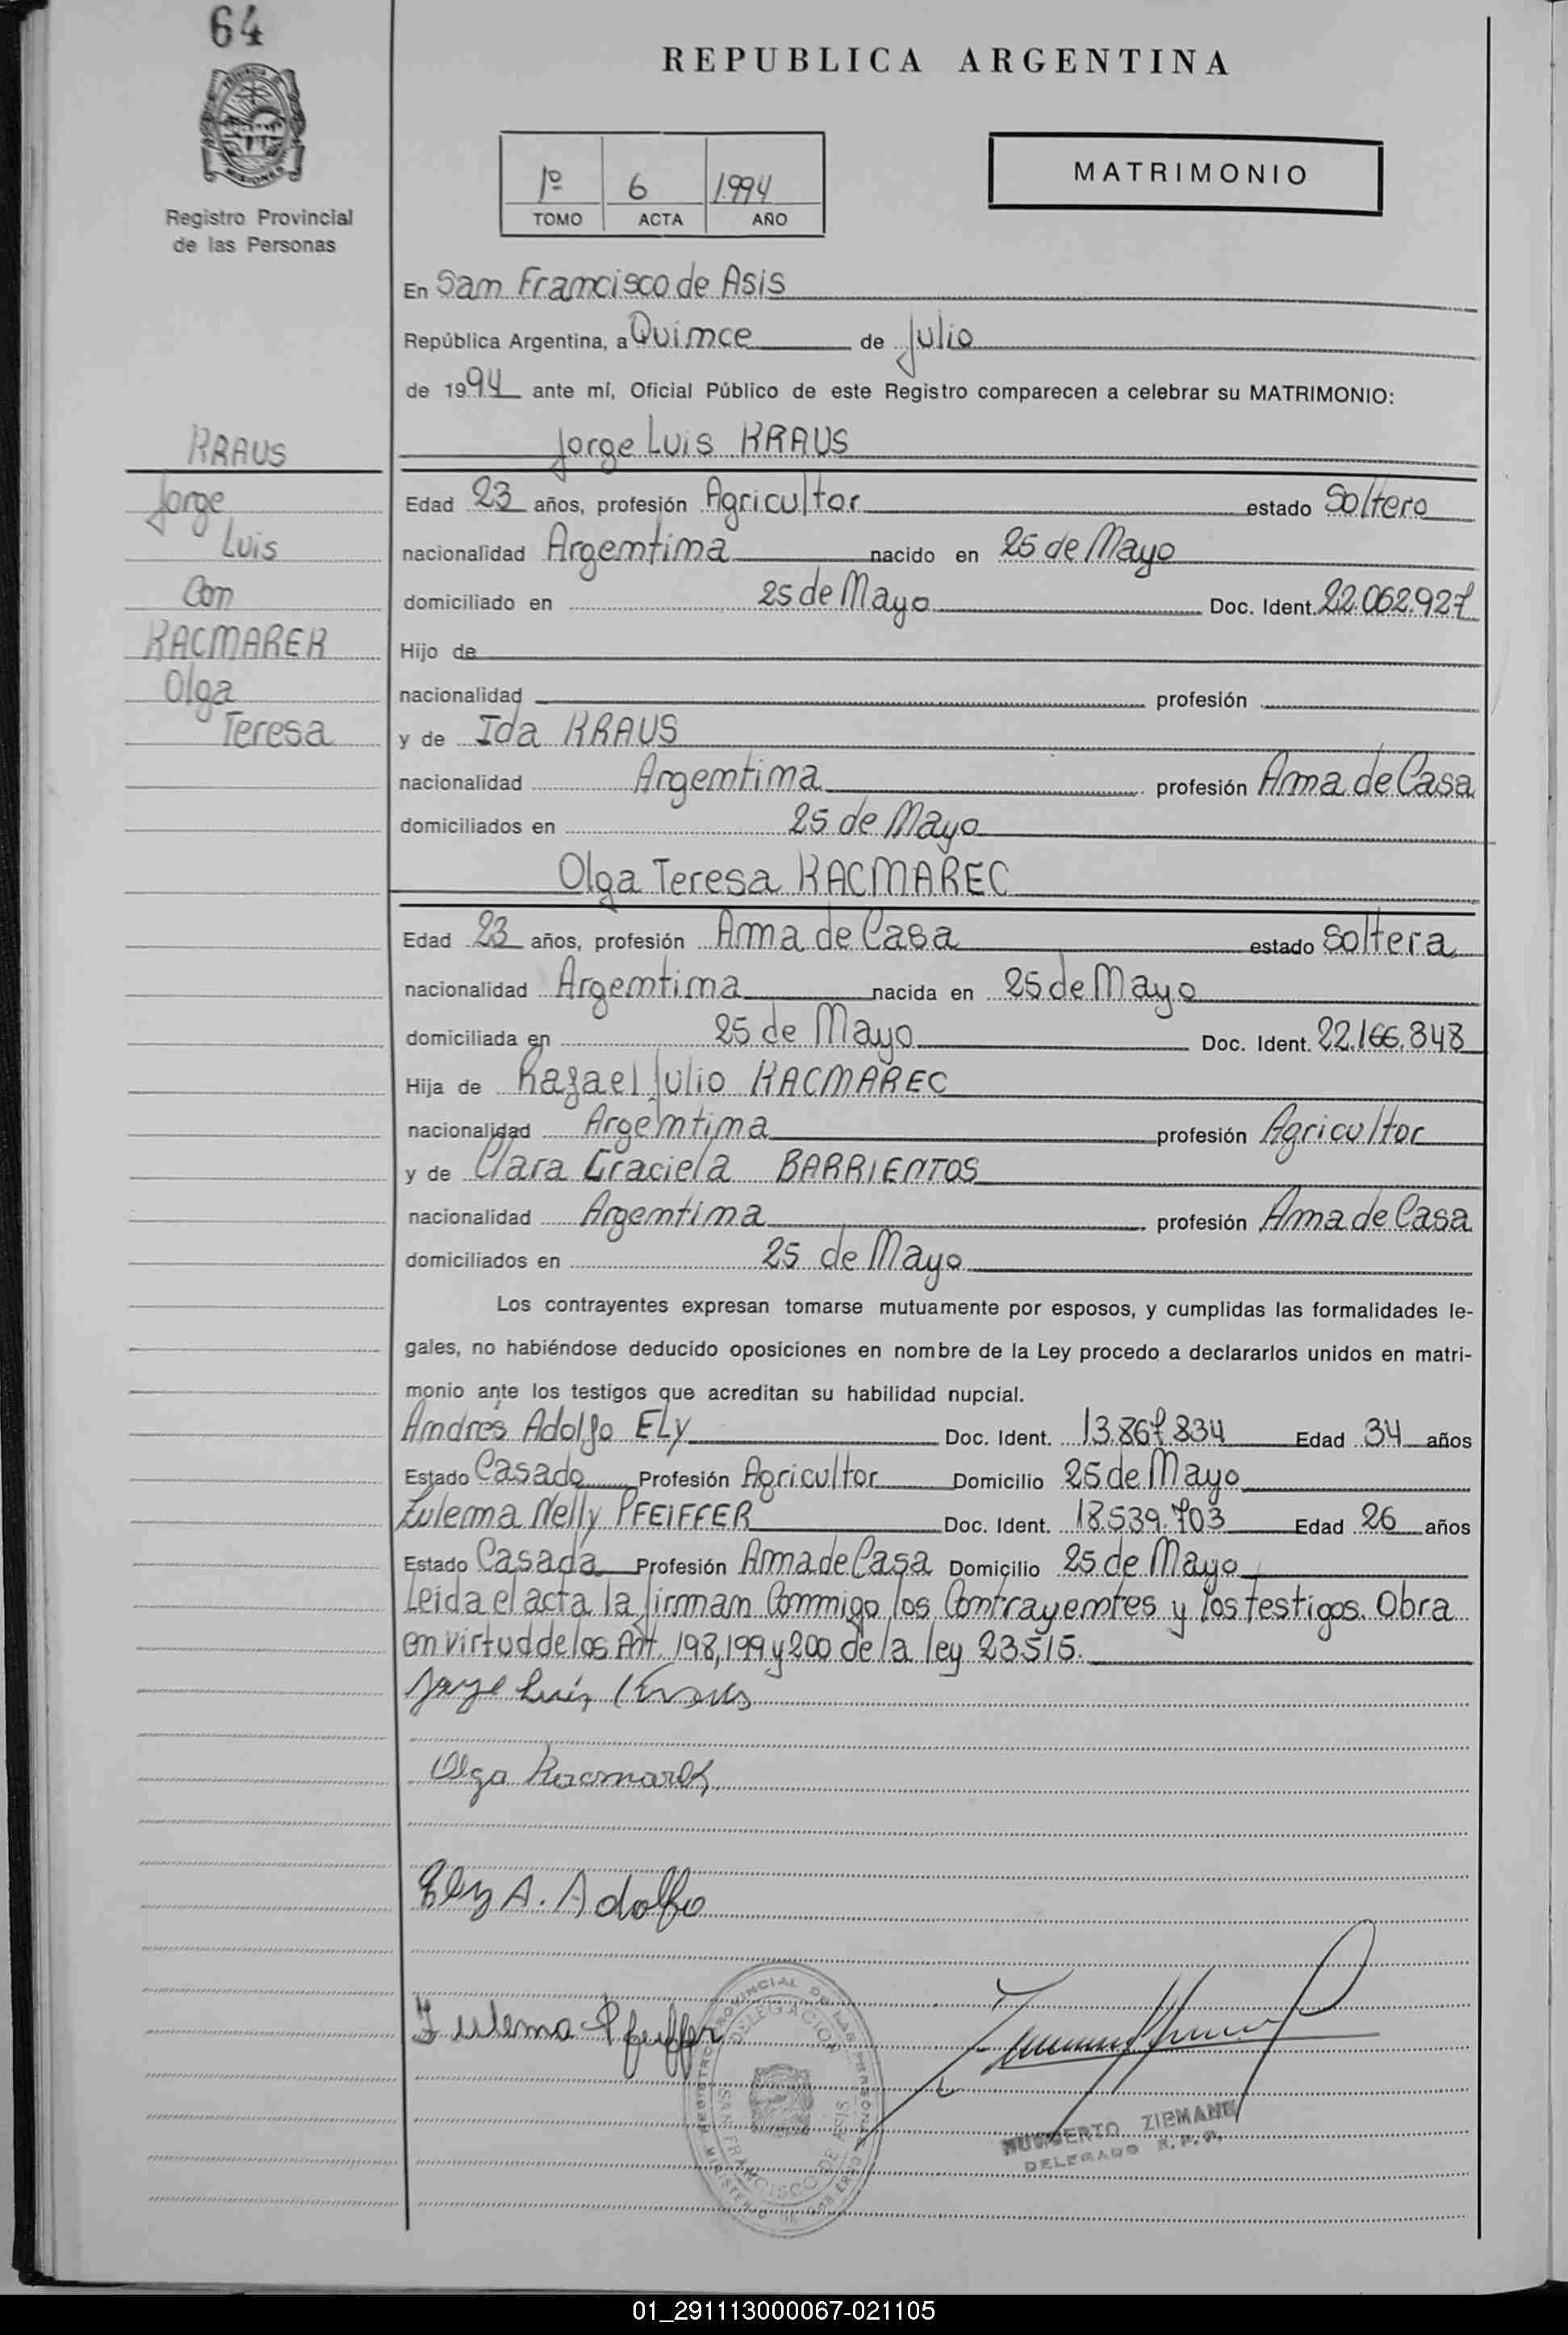 64
REPUBLICA ARGENTINA
PROVINCIA DE MISIONES
Registro Provincial
de las Personas
1º 6 1.994
TOMO ACTA AÑO
MATRIMONIO
En San Francisco de Asis
República Argentina, a Quince de Julio
de 1994 ante mí, Oficial Público de este Registro comparecen a celebrar su MATRIMONIO:
KRAUS
Jorge
Luis
Con
KACMAREK
Olga
Teresa
Jorge Luis KRAUS
Edad 23 años, profesión Agricultor estado Soltero
nacionalidad Argentina nacido en 25 de Mayo
domiciliado en 25 de Mayo Doc. Ident. 22.062.927
Hijo de
nacionalidad profesión
y de Ida KRAUS
nacionalidad Argentina profesión Ama de Casa
domiciliados en 25 de Mayo
Olga Teresa KACMAREC
Edad 23 años, profesión Ama de Casa estado Soltera
nacionalidad Argentina nacida en 25 de Mayo
domiciliada en 25 de Mayo Doc. Ident. 22.166.848
Hija de Rafael Julio KACMAREC
nacionalidad Argentina profesión Agricultor
y de Clara Graciela BARRIENTOS
nacionalidad Argentina profesión Ama de Casa
domiciliados en 25 de Mayo
Los contrayentes expresan tomarse mutuamente por esposos, y cumplidas las formalidades le-
gales, no habiéndose deducido oposiciones en nombre de la Ley procedo a declararlos unidos en matri-
monio ante los testigos que acreditan su habilidad nupcial.
Andrés Adolfo ELY Doc. Ident. 13.867.834 Edad 34 años
Estado Casado Profesión Agricultor Domicilio 25 de Mayo
Zulema Nelly PFEIFFER Doc. Ident. 18.539.703 Edad 26 años
Estado Casada Profesión Ama de Casa Domicilio 25 de Mayo
Leida el acta la firman Conmigo los Contrayentes y los testigos. Obra
en virtud de los Art. 198, 199 y 200 de la ley 23515.
Jorge Luis Kraus
Olga Kacmarek
Ely A. Adolfo
Zulema Pfeiffer
REGISTRO PROVINCIAL DE LAS PERSONAS
DELEGACION
SAN FRANCISCO DE ASIS
MINISTERIO DE GOBIERNO
HUMBERTO ZIEMANN
DELEGADO R.P.P.
01_291113000067-021105